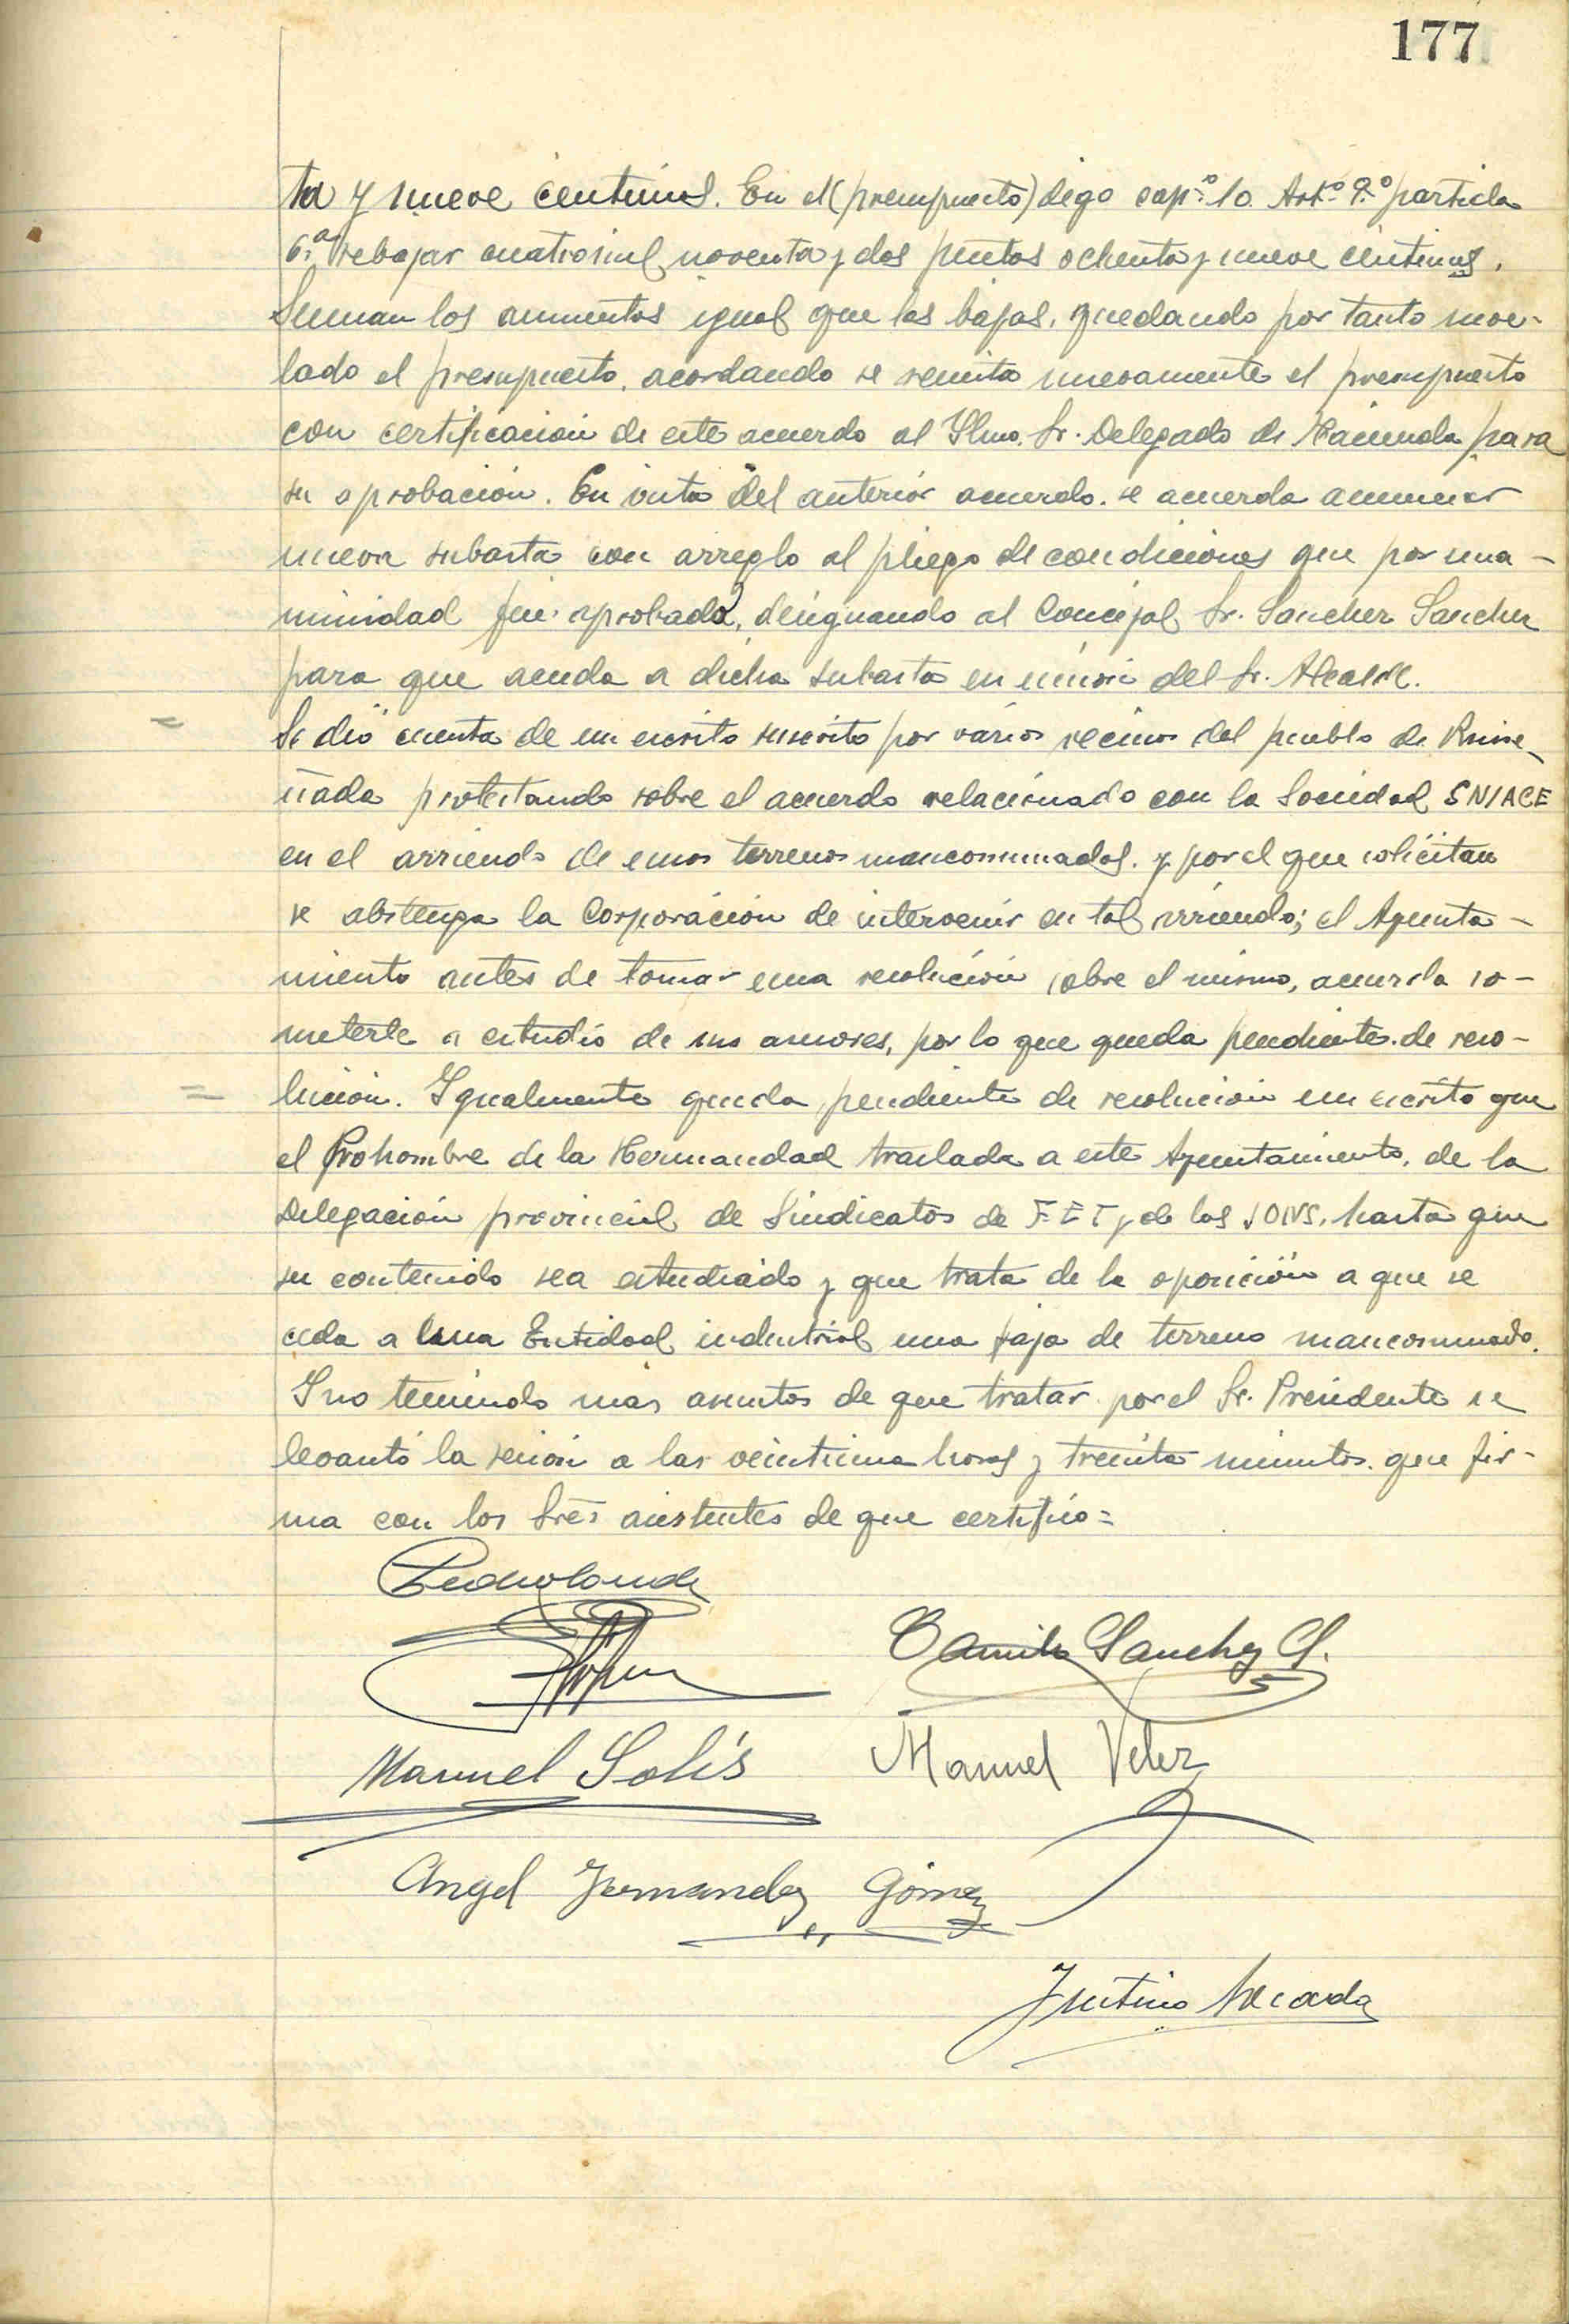 177
ta y nueve centimos. En el (presupuesto) digo cap.º 10. Artº 9.º partida
6.ª rebajar cuatromil noventa y dos pesetas ochenta y nueve centimos.
Suman los aumentos igual que las bajas, quedando por tanto nive-
lado el presupuesto, acordando se remita nuevamente el presupuesto
con certificación de este acuerdo al Ilmo. Sr. Delegado de Hacienda para
su aprobación. En vista del anterior acuerdo. se acuerda anunciar
nueva subasta con arreglo al pliego de condiciones que por una-
nimidad fué aprobado, designando al Concejal Sr. Sanchez Sanchez
para que acuda a dicha subasta en unión del Sr. Alcalde.
= Se dió cuenta de un escrito suscrito por varios vecinos del pueblo de Ruise-
ñada protestando sobre el acuerdo relacionado con la Sociedad SNIACE
en el arriendo de unos terrenos mancomunados. y por el que solicitan
se abstenga la Corporación de intervenir en tal arriendo; el Ayunta-
miento antes de tomar una resolución sobre el mismo, acuerda so-
meterle a estudio de sus asesores, por lo que queda pendiente de reso-
= lución. Igualmente queda pendiente de resolución un escrito que
el Prohombre de la Hermandad traslada a este Ayuntamiento, de la
Delegación provincial de Sindicatos de F.E.T y de las JONS, hasta que
su contenido sea estudiado y que trata de la oposición a que se
ceda a una Entidad industrial una faja de terreno mancomunado.
Y no teniendo más asuntos de que tratar por el Sr. Presidente se
levantó la sesión a las veintiuna horas y treinta minutos. que fir-
ma con los Sres asistentes de que certifico=
Camilo Sanchez S.
Manuel Solís Manuel Velez
Angel Fernandez Gómez
Justino